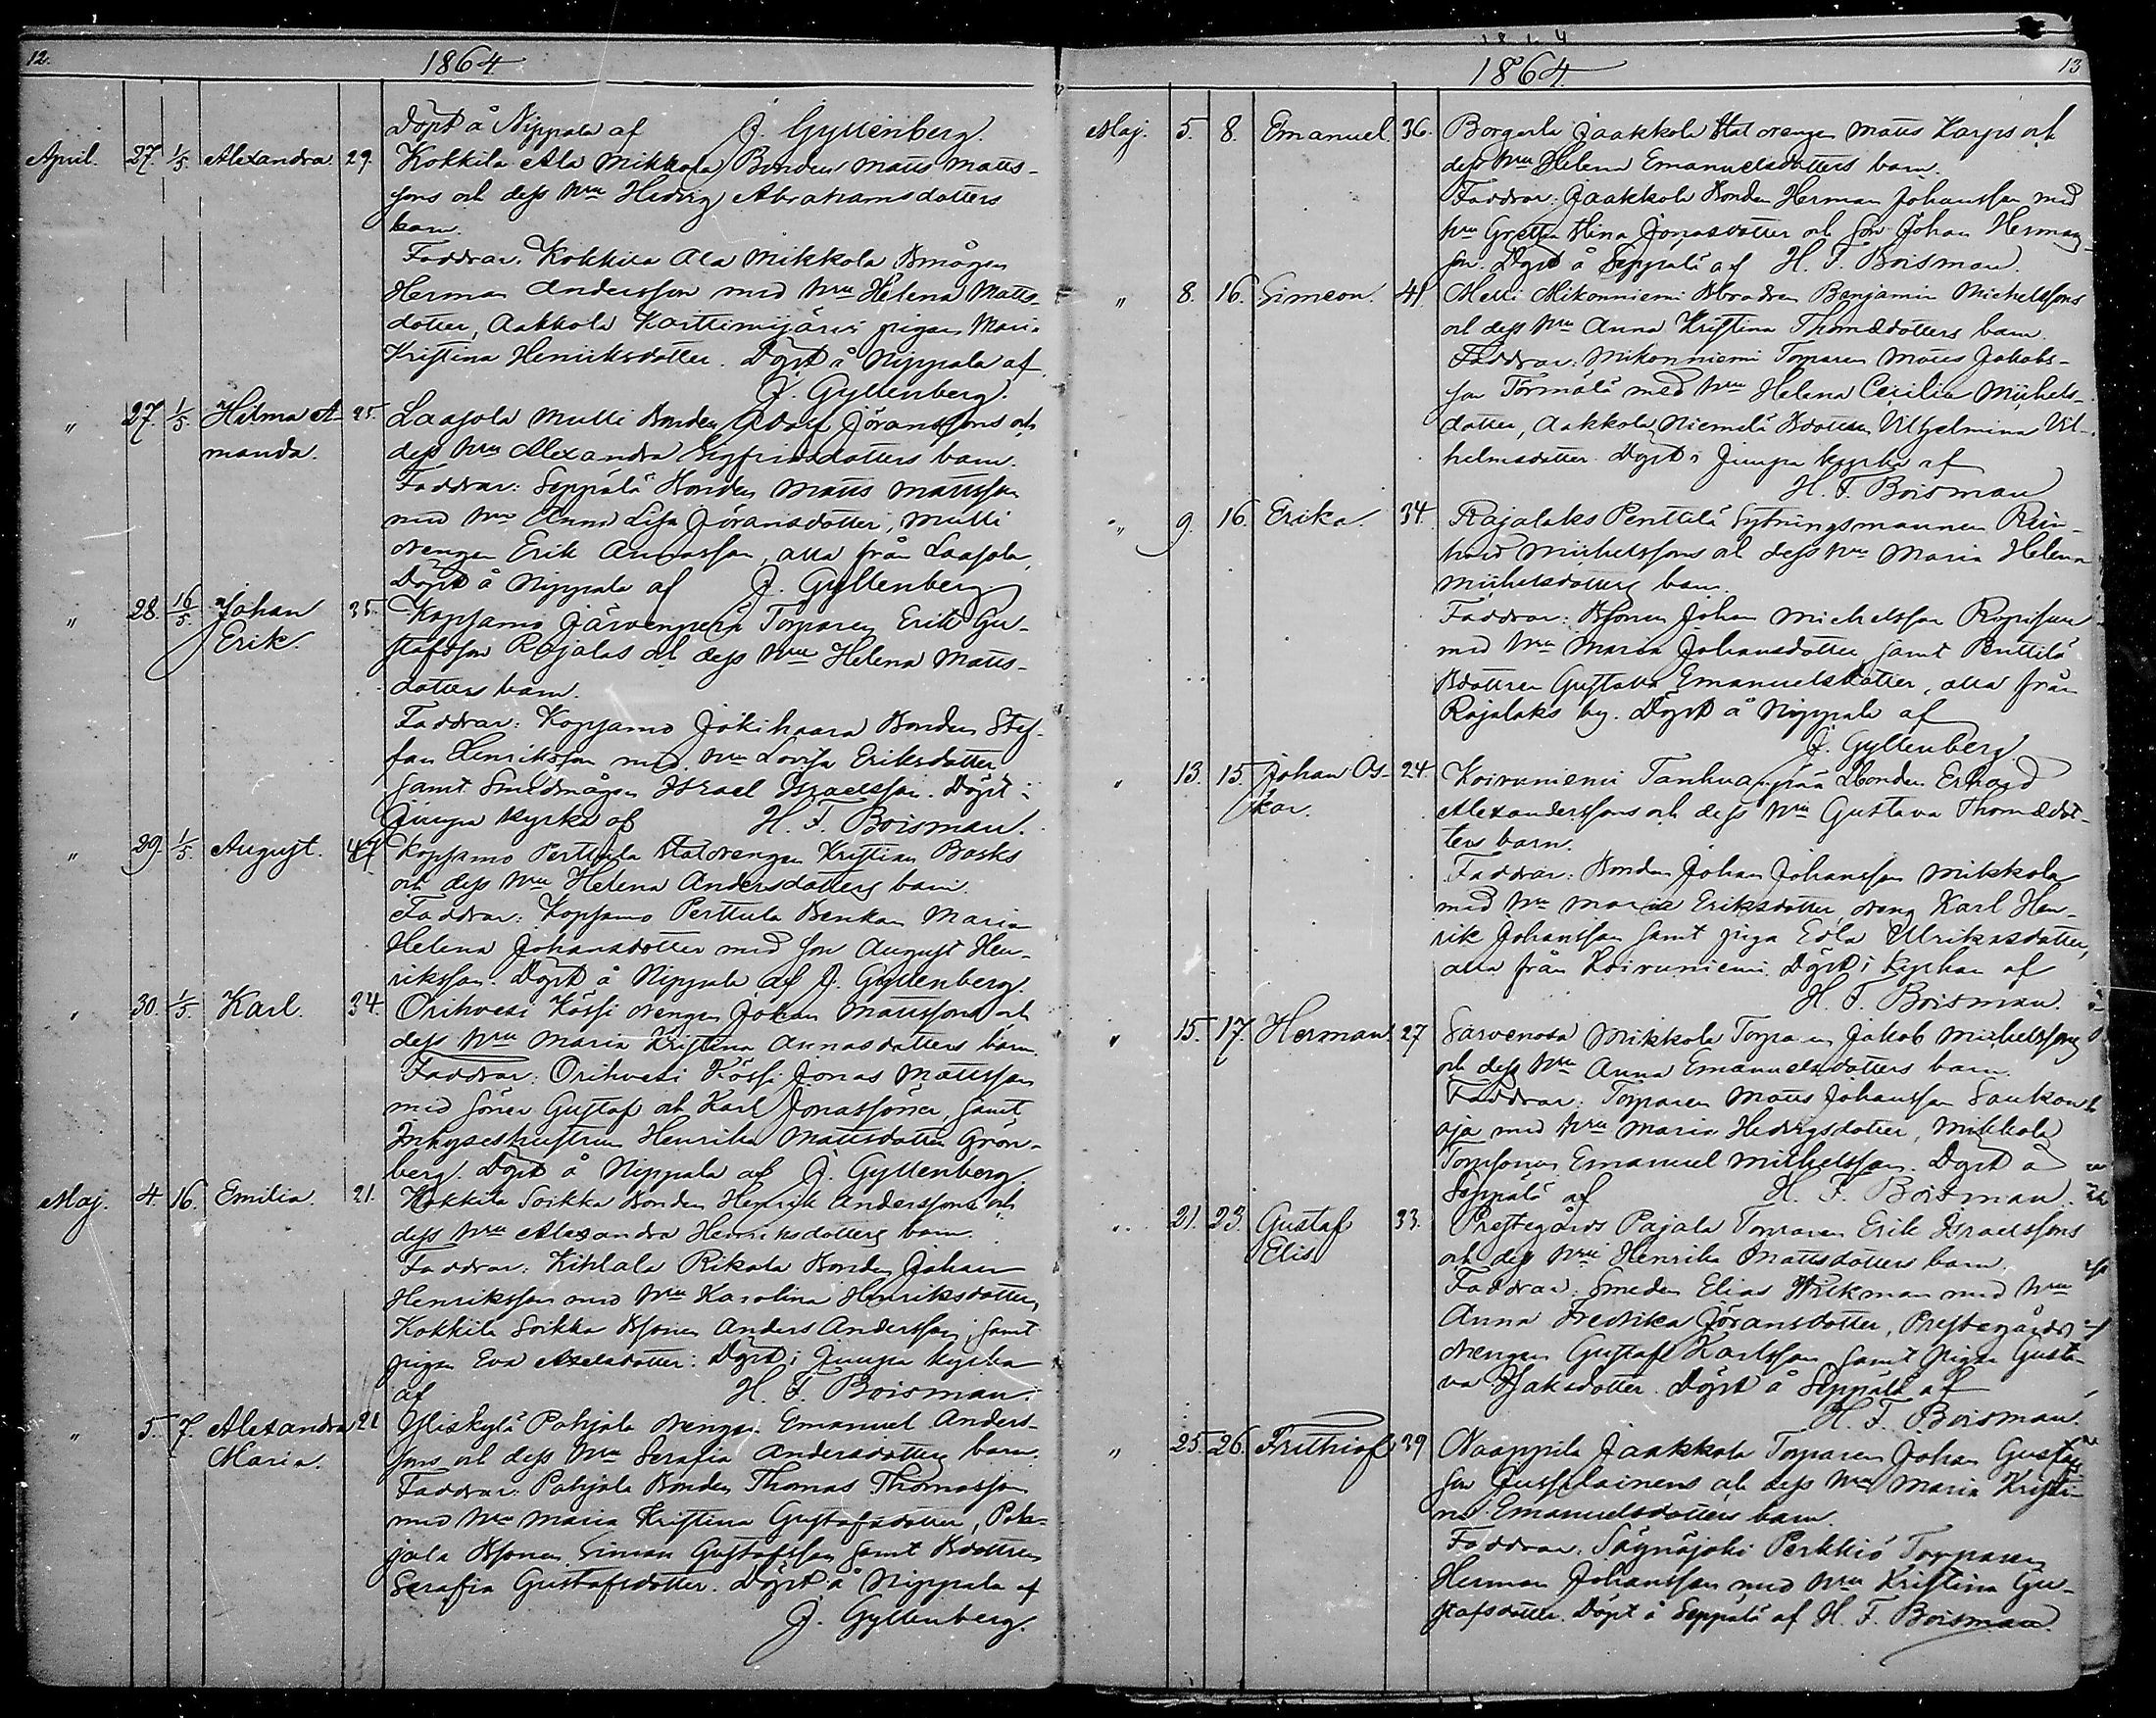 12.
1864.
Döpt å Nippala af J. Gyllenberg.
April. 27. 1/5. Alexandra. 29. Kokkila Ala Mikkola Bonden Matts Matts-
sons och dess Hru Hedvig Abrahamsdotters
barn.
Faddrar: Kokkila Ala Mikkola Bmågen
Herman Andersson med Hru Helena Matts-
dotter, Aakkola Karttimijärvi pigan Maria
Kristina Henriksdotter. Döpt å Nippala af
J. Gyllenberg.
" 27. 1/5. Hilma A- 25. Laasola Mulli Bonden Adolf Göranssons och
manda. dess Hru Alexandra Sigfridsdotters barn.
Faddrar: Seppälä Bonden Matts Mattsson
med Hru Anna Lisa Göransdotter, Mulli
drengen Erik Annasson, alla från Laasola.
Döpt å Nippala af J. Gyllenberg.
" 28. 16/5. Johan 35. Kopsamo Järvenperä Torparen Erik Gu-
Erik. stafsson Rajalas och dess Hru Helena Matts-
dotters barn.
Faddrar: Kopsamo Jokihaara Bonden Stef-
fan Henriksson med Hru Lovisa Eriksdotter
samt Smedmågen Israel Israelsson. Döpt i
Jumpa kyrka af H. F. Boisman.
" 29. 1/5. August. 47. Kopsamo Perttula Statdrengen Kristian Basks
och dess Hru Helena Andersdotters barn.
Faddrar: Kopsamo Perttula Benkan Maria
Helena Johansdotter med son August Hen-
riksson. Döpt å Nippala af J. Gyllenberg.
" 30. 1/5. Karl. 34. Orihvesi Kössi drengen Johan Mattssons och
dess Hru Maria Kristina Annasdotters barn.
Faddrar: Orihvesi Kössi Jonas Mattsson
med söner Gustaf och Karl Jonassöner, samt
Inhyseshustrun Henrika Mattsdotter Grön-
berg. Döpt å Nippala af J. Gyllenberg.
Maj. 4. 16. Emilia. 21. Kokkila Soikka Bonden Henrik Anderssons och
dess Hru Alexandra Henriksdotters barn.
Faddrar: Kihlala Rikala Bonden Johan
Henriksson med Hru Karolina Henriksdotter,
Kokkila Soikka Bsonen Anders Andersson, samt
pigan Eva Axelsdotter. Döpt i Jumpa kyrka
af H. F. Boisman.
" 5. 7. Alexandra 21 Yliskylä Pohjola drengen Emanuel Anders-
Maria. sons och dess Hru Serafia Andersdotters barn.
Faddrar: Pohjola Bonden Thomas Thomasson
med Hru Maria Kristina Gustafsdotter, Poh-
jola Bsonen Simon Gustafsson samt Bdottren
Serafia Gustafsdotter. Döpt å Nippala af
J. Gyllenberg.
13
1864.
Maj. 5. 8. Emanuel. 36. Borgerla Jaakkola Statdrengen Matts Karps och
dess Hru Helena Emanuelsdotters barn.
Faddrar: Jaakkola Bonden Herman Johansson med
Hru Gretha Stina Jonasdotter och son Johan Herman-
son. Döpt å Seppälä af H. F. Boisman.
" 8. 16. Simeon. 41. Melli Mikonniemi Bbrodren Benjamin Michelssons
och dess Hru Anna Kristina Thomædotters barn.
Faddrar: Mikonniemi Torparen Matts Jakobs-
son Törmälä med Hru Helena Cecilia Michels-
dotter, Aakkola Niemelä Bdottren Vilhelmina Vil-
helmsdotter. Döpt i Jumpa kyrka af
H. F. Boisman
" 9. 16. Erika. 34. Rajalaks Penttilä Sytningsmannen Rein-
hold Michelssons och dess Hru Maria Helena
Michelsdotters barn.
Faddrar: Bsonen Johan Michelsson
med Hru Maria Johansdotter samt Penttilä
Bdottren Gustava Emanuelsdotter, alla från
Rajalaks by. Döpt å Nippala af
J. Gyllenberg.
" 13. 15. Johan Os- 24. Koivuniemi Tanhuanpää Bonden Erhard
kar. Alexanderssons och dess Hru Gustava Thomædot-
ters barn.
Faddrar: Bonden Johan Johansson Mikkola
med Hru Maria Eriksdotter, dreng Karl Hen-
rik Johansson samt piga Edla Ulriksdotter,
alla från Koivuniemi. Döpt i kyrkan af
H. F. Boisman.
" 15. 17. Herman. 27 Sarvenosa Mikkola Torparen Jakob Michelssons
och dess Hru Anna Emanuelsdotters barn.
Faddrar: Torparen Matts Johansson Saukon-
oja med Hru Maria Hedvigsdotter, Mikkola
Torpsonen Emanuel Michelsson. Döpt å
Seppälä af H. F. Boisman.
" 21. 23. Gustaf 33. Prestegårds Pajala Torparen Erik Israelssons
Elis och dess Hru Henrika Mattsdotters barn.
Faddrar: Smeden Elias Wikman med Hru
Anna Fredrika Göransdotter, Prestegårds
drengen Gustaf Karlsson samt pigan Gusta-
va Isaksdotter. Döpt å Seppälä af
H. F. Boisman.
" 25. 26. Frithiof 39 Naappila Jaakkola Torparen Johan Gustafs-
son Jussilainens och dess Hru Maria Kristi-
na Emanuelsdotters barn.
Faddrar: Säynäjoki Perkkiö Torparen
Herman Johansson med Hru Kristina Gu-
stafsdotter. Döpt å Seppälä af H. F. Boisman.